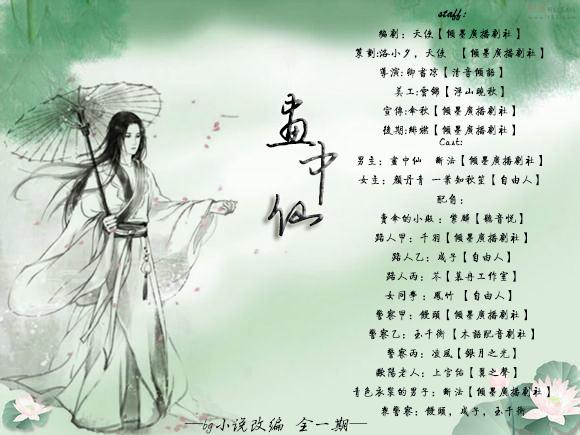 畫中仙
staff:
編劇：天使【傾墨廣播劇社】
策劃:洛小夕，天使 【傾墨廣播劇社】
導演:卿若凉【清音傾語】
美工:雲錦【浮山晚秋】
宣傳:傘秋【傾墨廣播劇社】
後期:緋燃【傾墨廣播劇社】
Cast:
男主：畫中仙 斷法【傾墨廣播劇社】
女主：顏丹青 一葉知秋笙【自由人】
配角：
賣傘的小販：紫麟【聽音悅】
路人甲：千羽【傾墨廣播劇社】
路人乙：成子【自由人】
路人丙：苓【某舟工作室】
女同學：鳳竹 【自由人】
警察甲：饅頭【傾墨廣播劇社】
警察乙：玉千衡【木語配音劇社】
警察丙：凌風【銀月之光】
歐陽老人：上官仙【翼之聲】
青色衣裳的男子：斷法【傾墨廣播劇社】
衆警察：饅頭，成子，玉千衡
—bg小说改編 全一期—